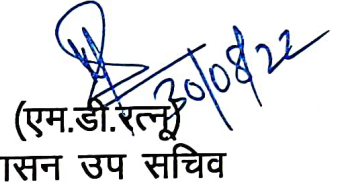 30/08/22
(एम.डी.रत्नू)
ासन उप सचिव